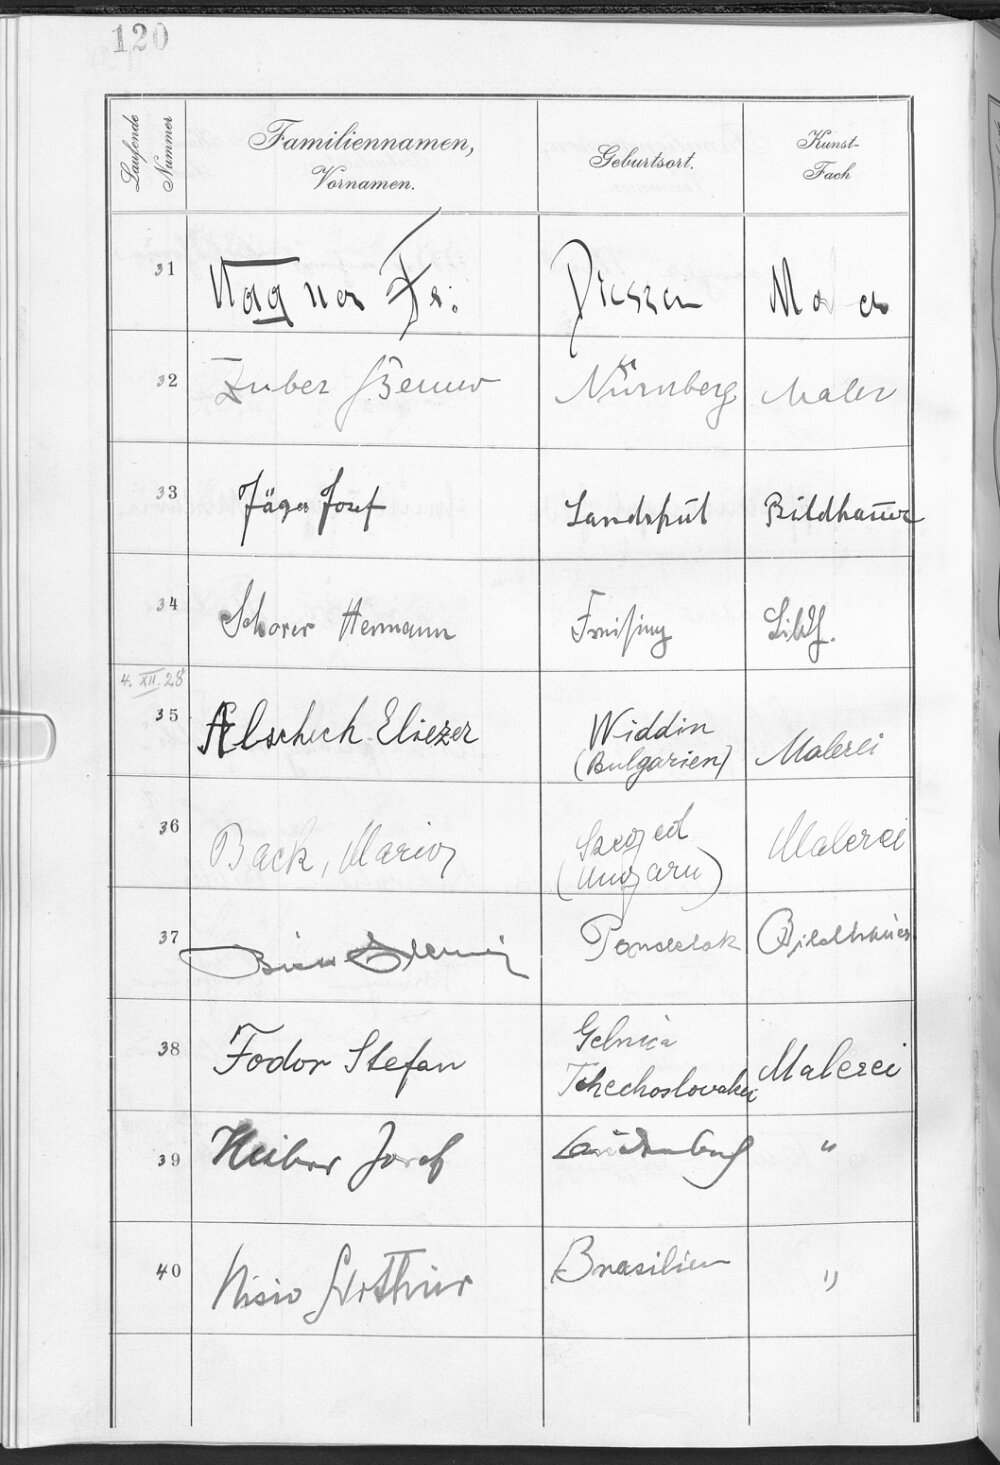 120
Laufende Nummer
Familiennamen,
Vornamen.
Geburtsort.
Kunst-
Fach
31 Wagner Fr: Diessen Maler
32 Zuber Benno Nürnberg Maler
33 Jäger Josef Landshut Bildhauer
34 Schorer Hermann Freising Bildh.
4. XII. 28
35 Alschech Eliezer Widdin
(Bulgarien) Malerei
36 Back, Maria Szeged
(Ungarn) Malerei
37 Bildhauer
38 Fodor Stefan Gelnica
Tchechoslovakei Malerei
39 Josef "
40 Nisio Arthur Brasilien "